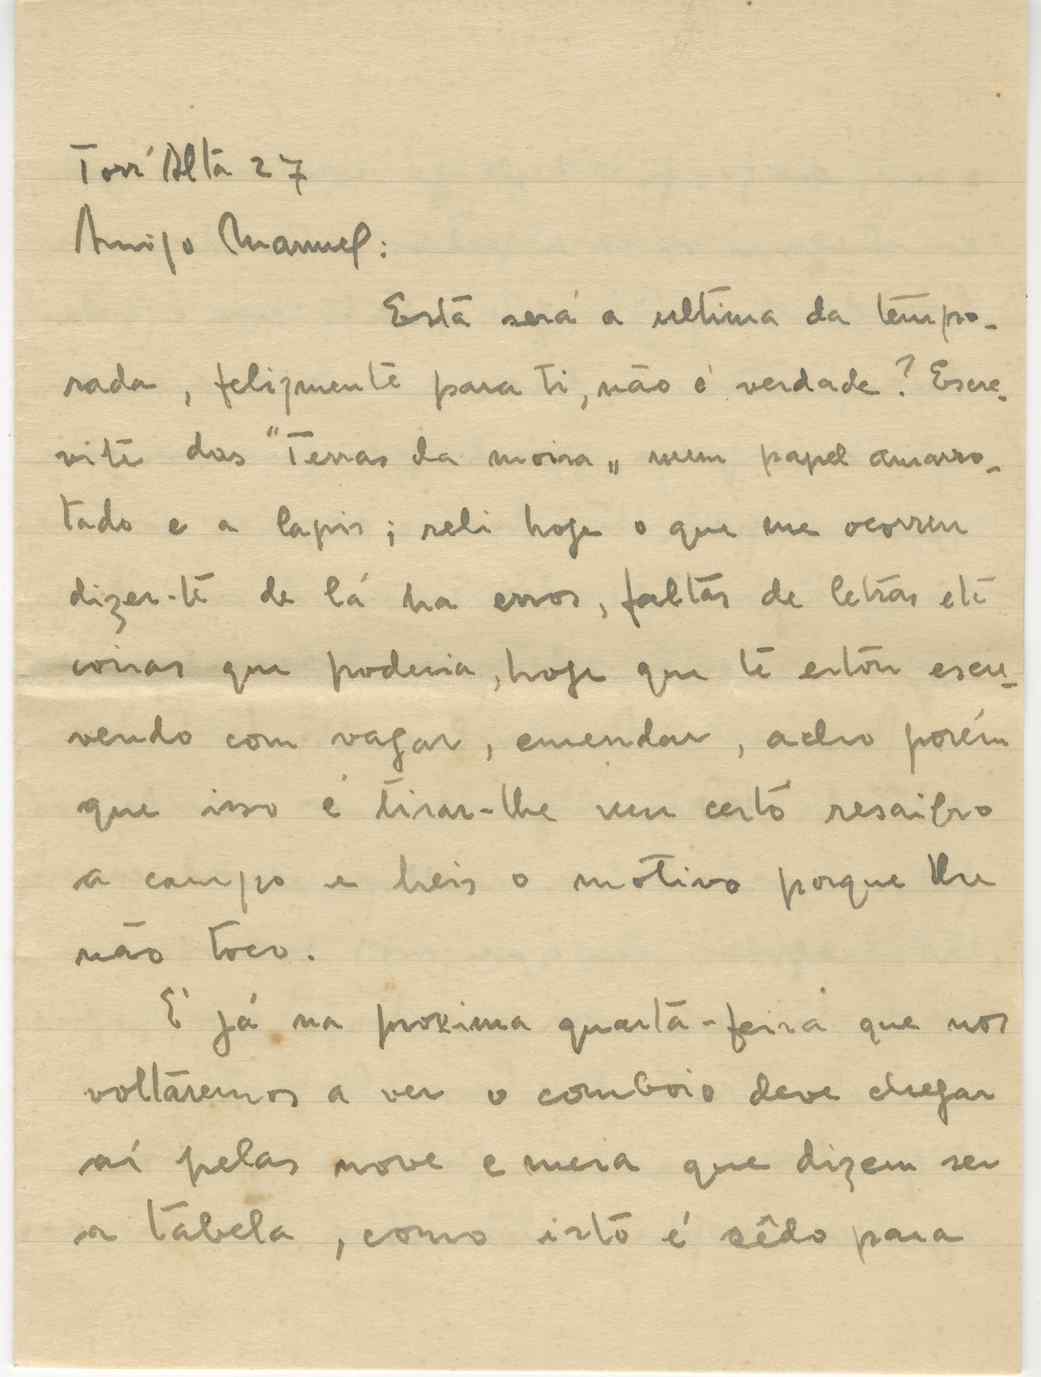 Torr'Alta 27
Amigo Manuel:
Esta será a ultima da tempo-
rada, felizmente para ti, não é verdade? Escre-
vite das "Terras da moira„ num papel amarro-
tado e a lapis; reli hoje o que me ocorreu
dizer-te de lá ha erros, faltas de letras etc
coisas que poderia, hoje que te estou escre-
vendo com vagar, emendar, acho porém
que isso é tirar-lhe um certo resaibro
a campo e heis o motivo porque lhe
não toco.
E' já na proxima quarta-feira que nos
voltaremos a ver o comboio deve chegar
aí pelas nove e meia que dizem ser
a tabela, como isto é sêdo para